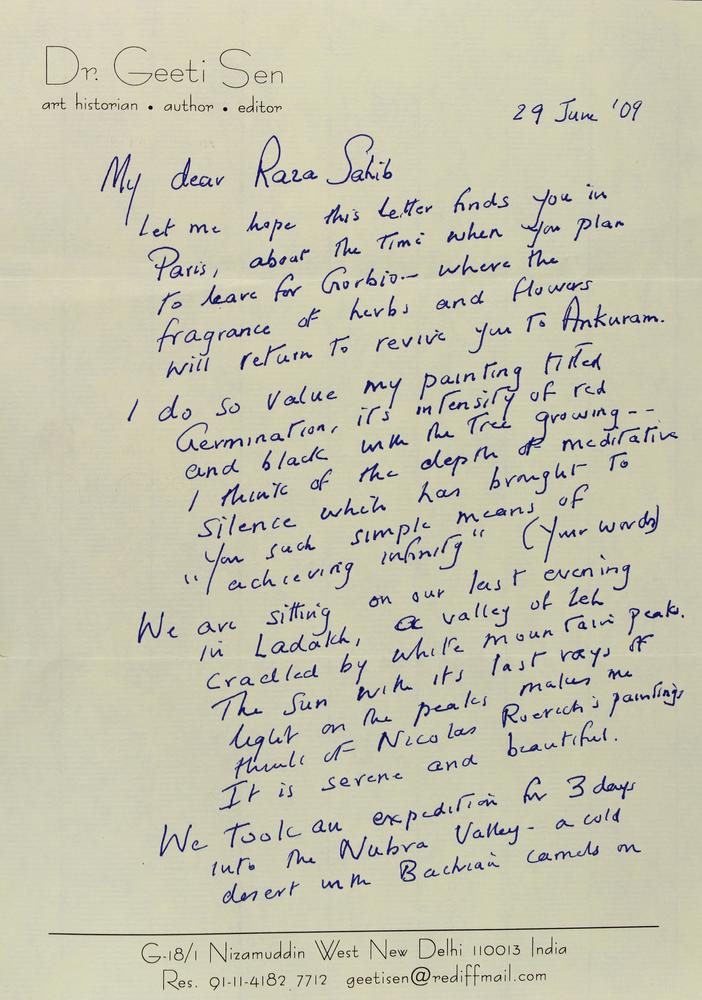 Dr. Geeti Sen
art historian • author • editor
29 June '09
My dear Raza Sahib
Let me hope this letter finds you in
Paris, about the time when you plan
to leave for Gorbio - where the
fragrance of herbs and flowers
will return to revive you to Ankuram.
I do so value my painting titled
Germination, its intensity of red
and black with the Tree growing --
I think of the depth of meditative
silence which has brought to
you such simple means of
"achieving infinity" (Your words)
We are sitting on our last evening
in Ladakh, a valley of Leh
cradled by white mountain peaks.
The Sun with its last rays of
light on the peaks makes me
think of Nicolas Roerich's paintings
It is serene and beautiful.
We took an expedition for 3 days
into the Nubra Valley - a cold
desert with Bactrian camels on
G-18/1 Nizamuddin West New Delhi 110013 India
Res. 91-11-4182 7712 geetisen@rediffmail.com